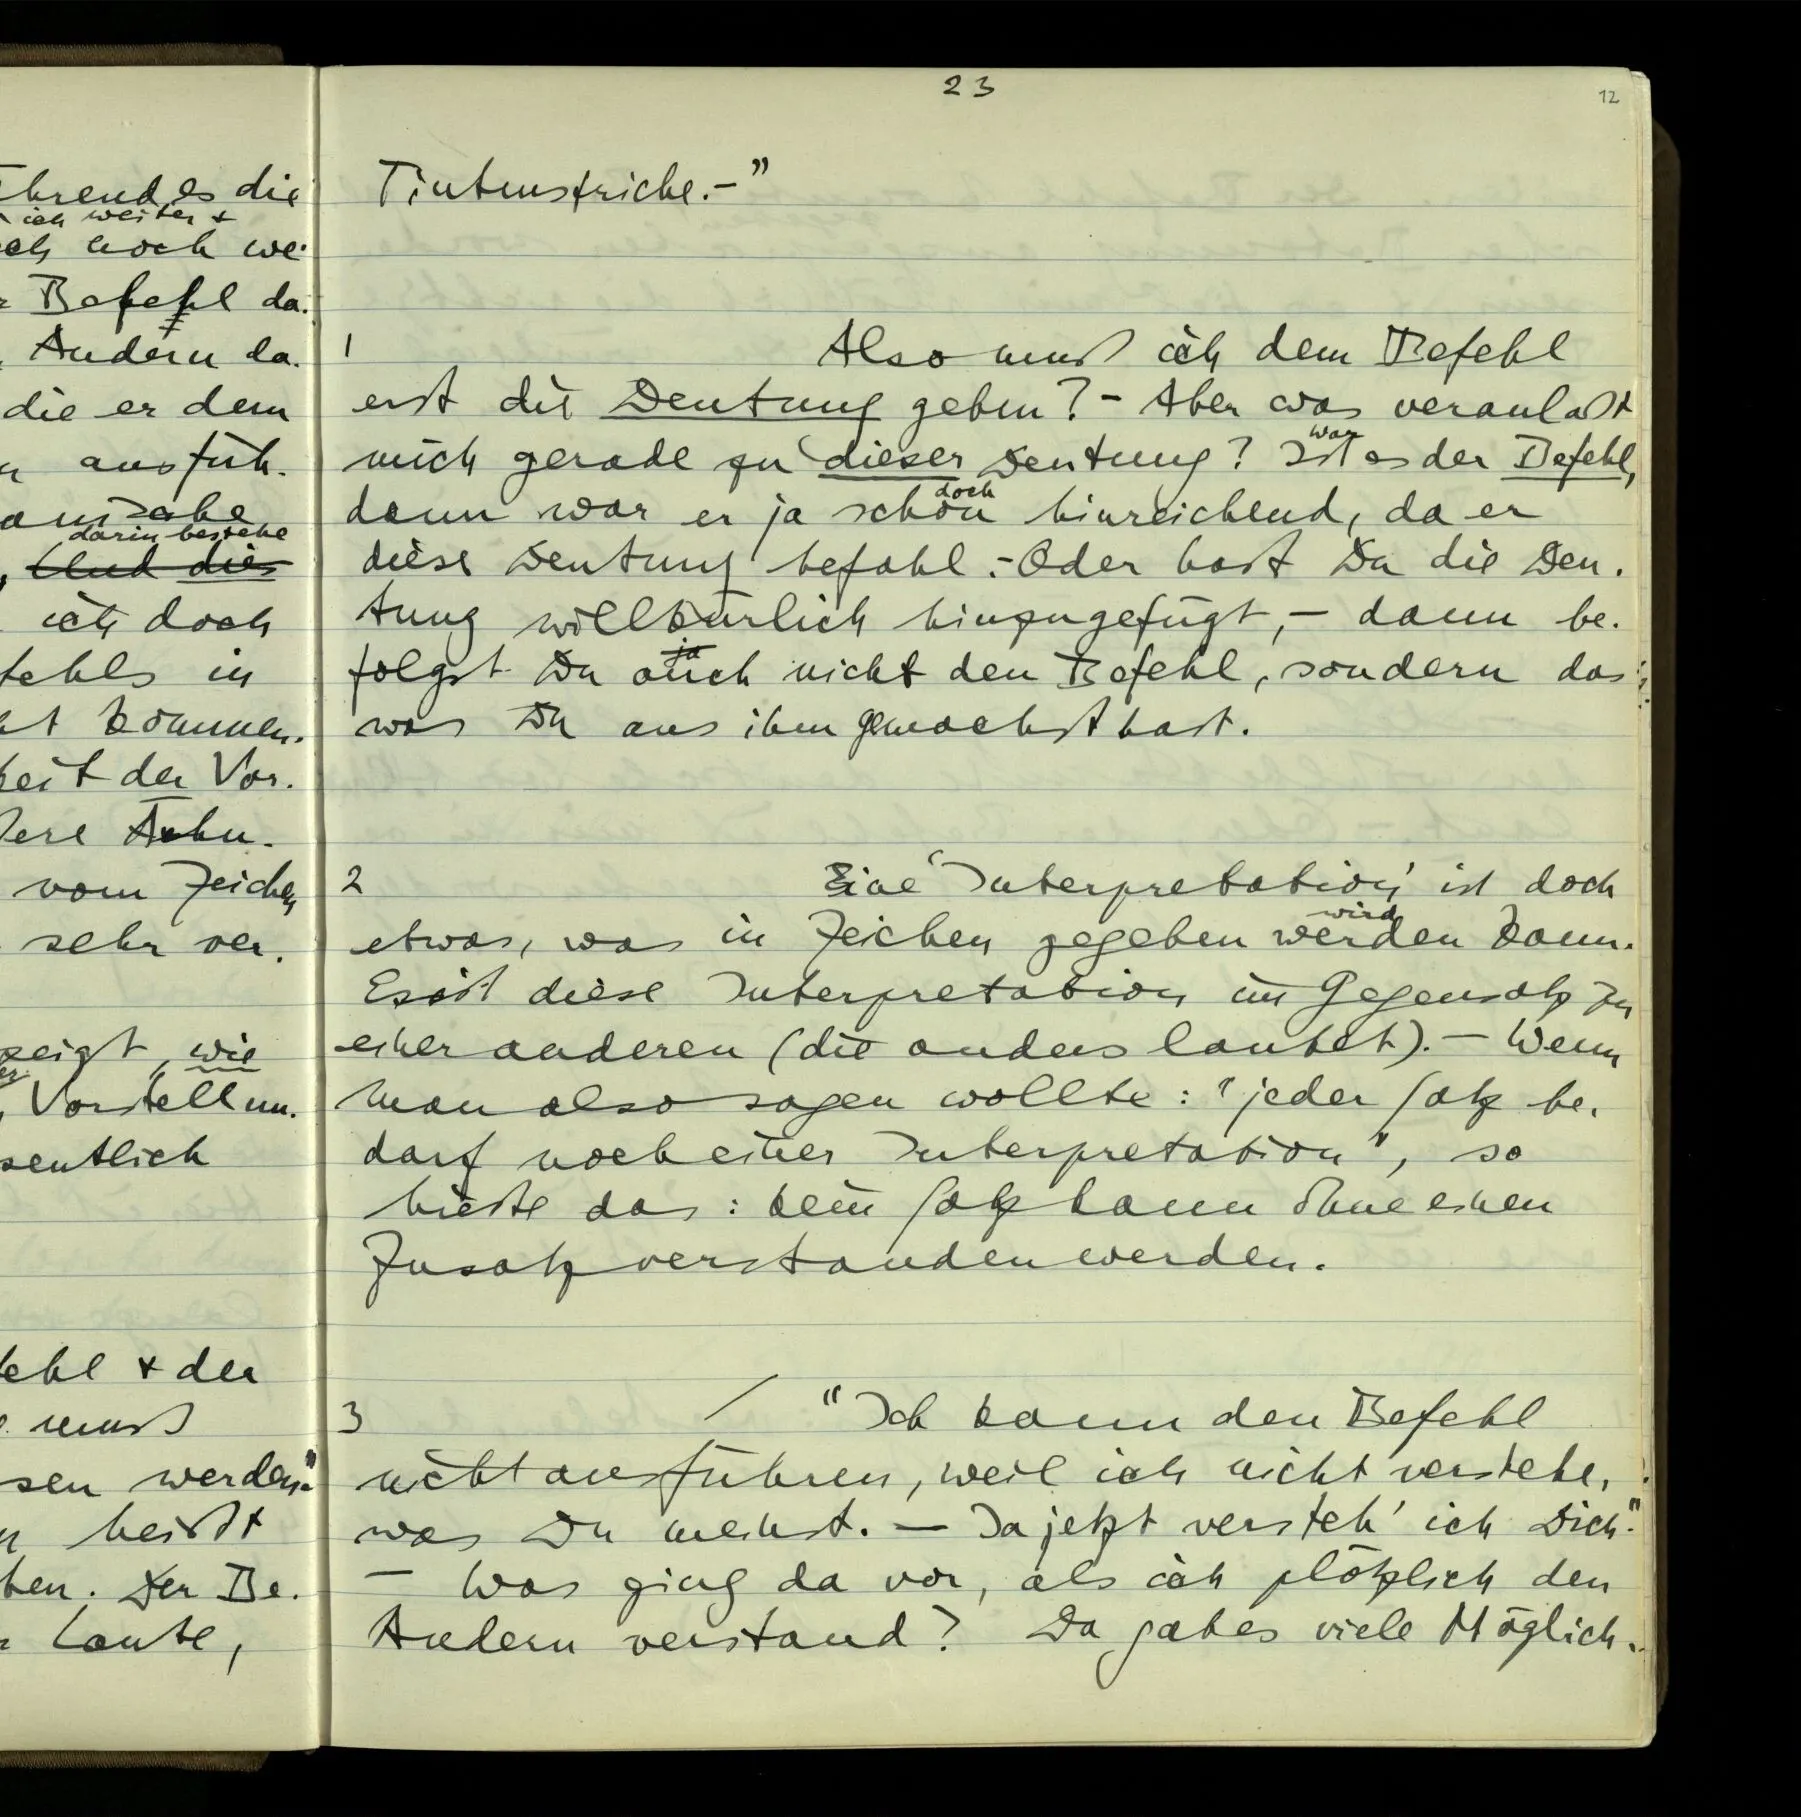 23
12
hrend es die
ich weiter +
noch we-
Befehl da-
Andern da-
die er dem
ausfüh-
darin bestehe
Und dies
ich doch
fehls in
kommen.
keit der Vor-
vom Zeichen
sehr ver-
zeigt, wie
Vorstellun-
sentlich
ehl + der
muß
sen werden."
heißt
ben. Der Be-
Laute,
Tintenstriche.–"
1 Also muß ich dem Befehl
erst die Deutung geben? – Aber was veranlaßt
war
mich gerade zu dieser Deutung? Ist es der Befehl,
doch
dann war er ja schon hinreichend, da er
diese Deutung befahl. – Oder hast Du die Deu-
tung willkürlich hinzugefügt, – dann be-
ja
folgst Du auch nicht den Befehl, sondern das
was Du aus ihm gemacht hast.
2 Eine 'Interpretation' ist doch
wird
etwas, was in Zeichen gegeben werden kann.
Es ist diese Interpretation im Gegensatz zu
einer anderen (die anders lautet). – Wenn
man also sagen wollte: "jeder Satz be-
darf noch einer Interpretation", so
hieße das: kein Satz kann ohne einen
Zusatz verstanden werden.
3 / "Ich kann den Befehl
nicht ausführen, weil ich nicht verstehe,
was Du meinst. – Ja jetzt versteh' ich Dich."
– Was ging da vor, als ich plötzlich den
Andern verstand? Da gab es viele Möglich-